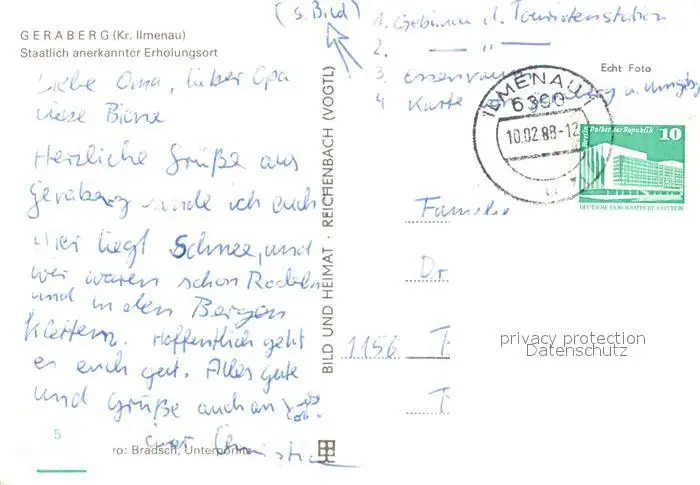 (s. Bild)
GERABERG (Kr. Ilmenau)
Staatlich anerkannter Erholungsort
Liebe Oma, lieber Opa
liebe Biene
Herzliche Grüße aus
Geraberg sende ich euch
Hier liegt Schnee, und
wir waren schon Rodeln
und in den Bergen
klettern. Hoffentlich geht
es euch gut. Alles gute
und Grüße auch an
eure Christia
5
ro: Bradsch, Unterpörlitz
BILD UND HEIMAT · REICHENBACH (VOGTL)
1. Gebäude d. Touristenstation
2. — " —
3 Essenraum
4 Karte Geraberg u. Umgebg
Echt Foto
ILMENAU 1
6300
10.02.88-12
Berlin, Palast der Republik 10
DEUTSCHE DEMOKRATISCHE REPUBLIK
Familie
Dr
1156
privacy protection
Datenschutz